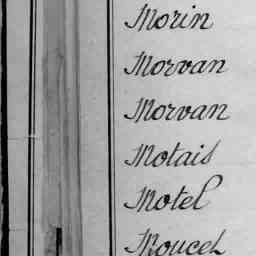 Morin
Morvan
Morvan
Motais
Motel
Moucel